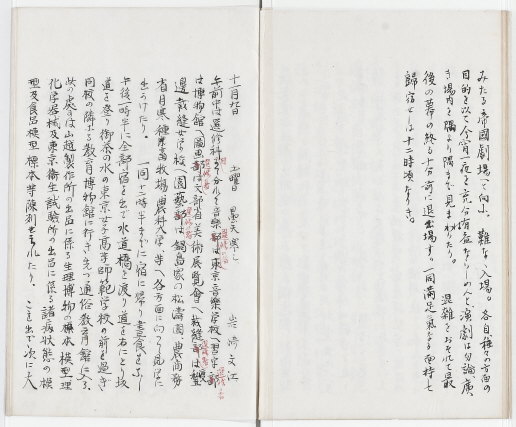 みたる帝國劇場へと向ふ、難なく入場。各自種々の方面の
目的を以て今宵一夜を充分有益ならしめんと、演劇は勿論廣
き場内を隅より隅まで見まわたり。 混雑をおそれて最
後の幕の終る十分前に退出場す。一同満足氣なる面持も
歸宿せしは十二時頃なりき。
十一月九日 土曜日 曇天寒し 岩崎文江
午前中は選修科に分れ音樂部は東京音樂学校へ習字部
は博物館へ圖画部は文部省美術展覧會へ裁縫部は渡
邊裁縫女学校へ園藝部は鍋島家の松濤園農商務
省目黒種畜牧場農科大学、等へ各方面に向つて見学に
出かけたり。 一同十二時半までに宿に歸り晝食をなし
午後一時半に全部宿を出で水道橋を渡り道を右にとり坂
道を登り御茶の水の東京女子高等師範学校の前を過ぎ
同校の隣なる教育博物館に行き先づ通俗教育館に入る、
此の處には山越製作所の出品に係る生理博物標本模型理
化学器械及東京衛生試験所の出品に係る諸病状態の模
型及食品模型標本等陳列せられたり、 こを出で次に大